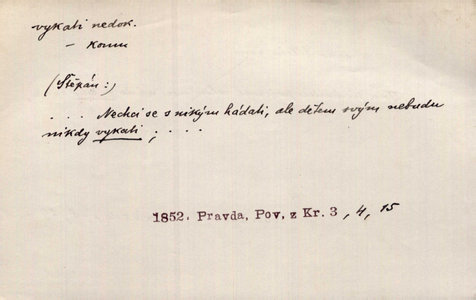 vykati nedok.
- komu
(Štěpán:)
. . . . Nechci se s nikým hádati, ale dětem svým nebudu
nikdy vykati ; . . . .
1852. Pravda, Pov. z Kr. 3 , 4, 15